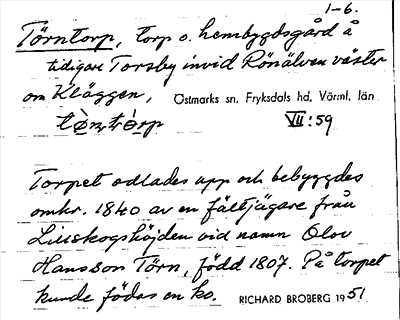 1-6.
Törntorp, torp o. hembygdsgård å
tidigare Torsby invid Rönälven väster
om Kläggen, Östmarks sn. Fryksdals hd, Värml. län
tö̀ntɔ̀rp VII:59
Torpet odlades upp och bebyggdes
omkr. 1840 av en fältjägare från
Ljusskogshöjden vid namn Olov
Hansson Törn, född 1807. På torpet
kunde födas en ko. RICHARD BROBERG 1951